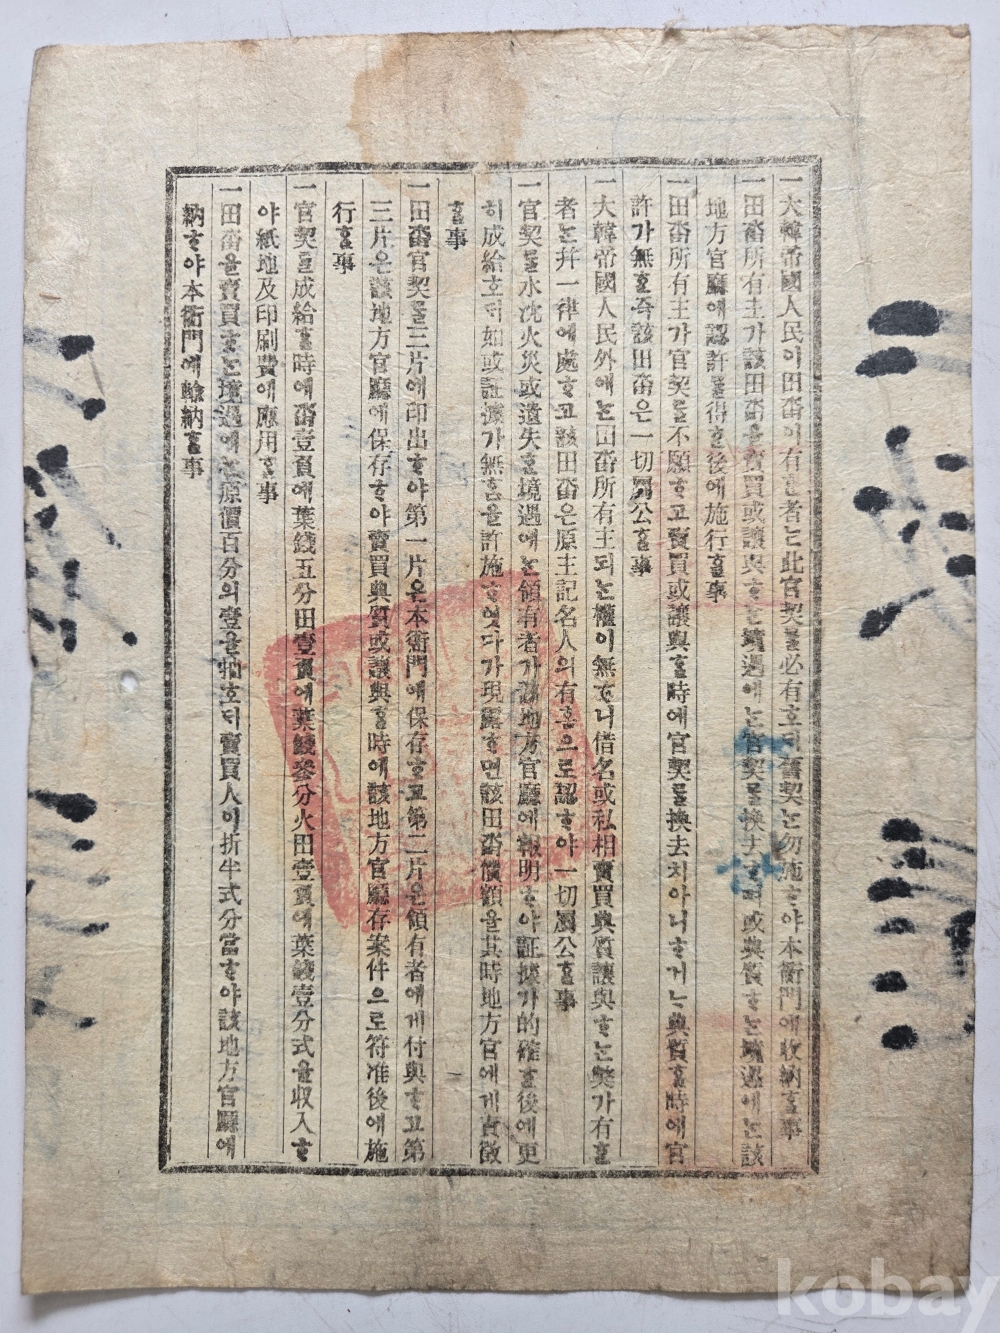 一大韓帝國人民이田畓이有ᄒᆞᆫ者ᄂᆞᆫ此官契ᄅᆞᆯ必有호ᄃᆡ舊契ᄂᆞᆫ勿施ᄒᆞ야本衙門에收納ᄒᆞᆯ事
一田畓所有主가該田畓을賣買或讓與ᄒᆞᄂᆞᆫ境遇에ᄂᆞᆫ官契ᄅᆞᆯ換去ᄒᆞ며或典質ᄒᆞᄂᆞᆫ境遇에ᄂᆞᆫ該
地方官廳에認許ᄅᆞᆯ得ᄒᆞᆫ後에施行ᄒᆞᆯ事
一田畓所有主가官契ᄅᆞᆯ不願ᄒᆞ고賣買或讓與ᄒᆞᆯ時에官契ᄅᆞᆯ換去치아니ᄒᆞ거ᄂᆞ典質ᄒᆞᆯ時에官
許가無ᄒᆞ즉該田畓은一切屬公ᄒᆞᆯ事
一大韓帝國人民外에ᄂᆞᆫ田畓所有主되ᄂᆞᆫ權이無ᄒᆞ니借名或私相賣買典質讓與ᄒᆞᄂᆞᆫ弊가有ᄒᆞᆯ
者ᄂᆞᆫ幷一律에處ᄒᆞ고該田畓은原主記名人의有ᄒᆞᆫ으로認ᄒᆞ야一切屬公ᄒᆞᆯ事
一官契ᄅᆞᆯ水沈火災或遺失ᄒᆞᆫ境遇에ᄂᆞᆫ領有者가該地方官廳에報明ᄒᆞ야証據가的確ᄒᆞᆫ後에更
히成給호ᄃᆡ如或証據가無ᄒᆞᆷ을許施ᄒᆞ엿다가現露ᄒᆞ면該田畓價額을其時地方官에게責徵
ᄒᆞᆯ事
一田畓官契ᄅᆞᆯ三片에印出ᄒᆞ야第一片은本衙門에保存ᄒᆞ고第二片은領有者에게付與ᄒᆞ고第
三片은該地方官廳에保存ᄒᆞ야賣買典質或讓與ᄒᆞᆯ時에該地方官廳存案件으로符准後에施
行ᄒᆞᆯ事
一官契ᄅᆞᆯ成給ᄒᆞᆯ時에畓壹負에葉錢五分田壹負에葉錢參分火田壹負에葉錢壹分式을收入ᄒᆞ
야紙地及印刷費에應用ᄒᆞᆯ事
一田畓을賣買ᄒᆞᄂᆞᆫ境遇에ᄂᆞᆫ原價百分의壹을抽호ᄃᆡ賣買人이折半式分當ᄒᆞ야該地方官廳에
納ᄒᆞ야本衙門에輸納ᄒᆞᆯ事
kobay